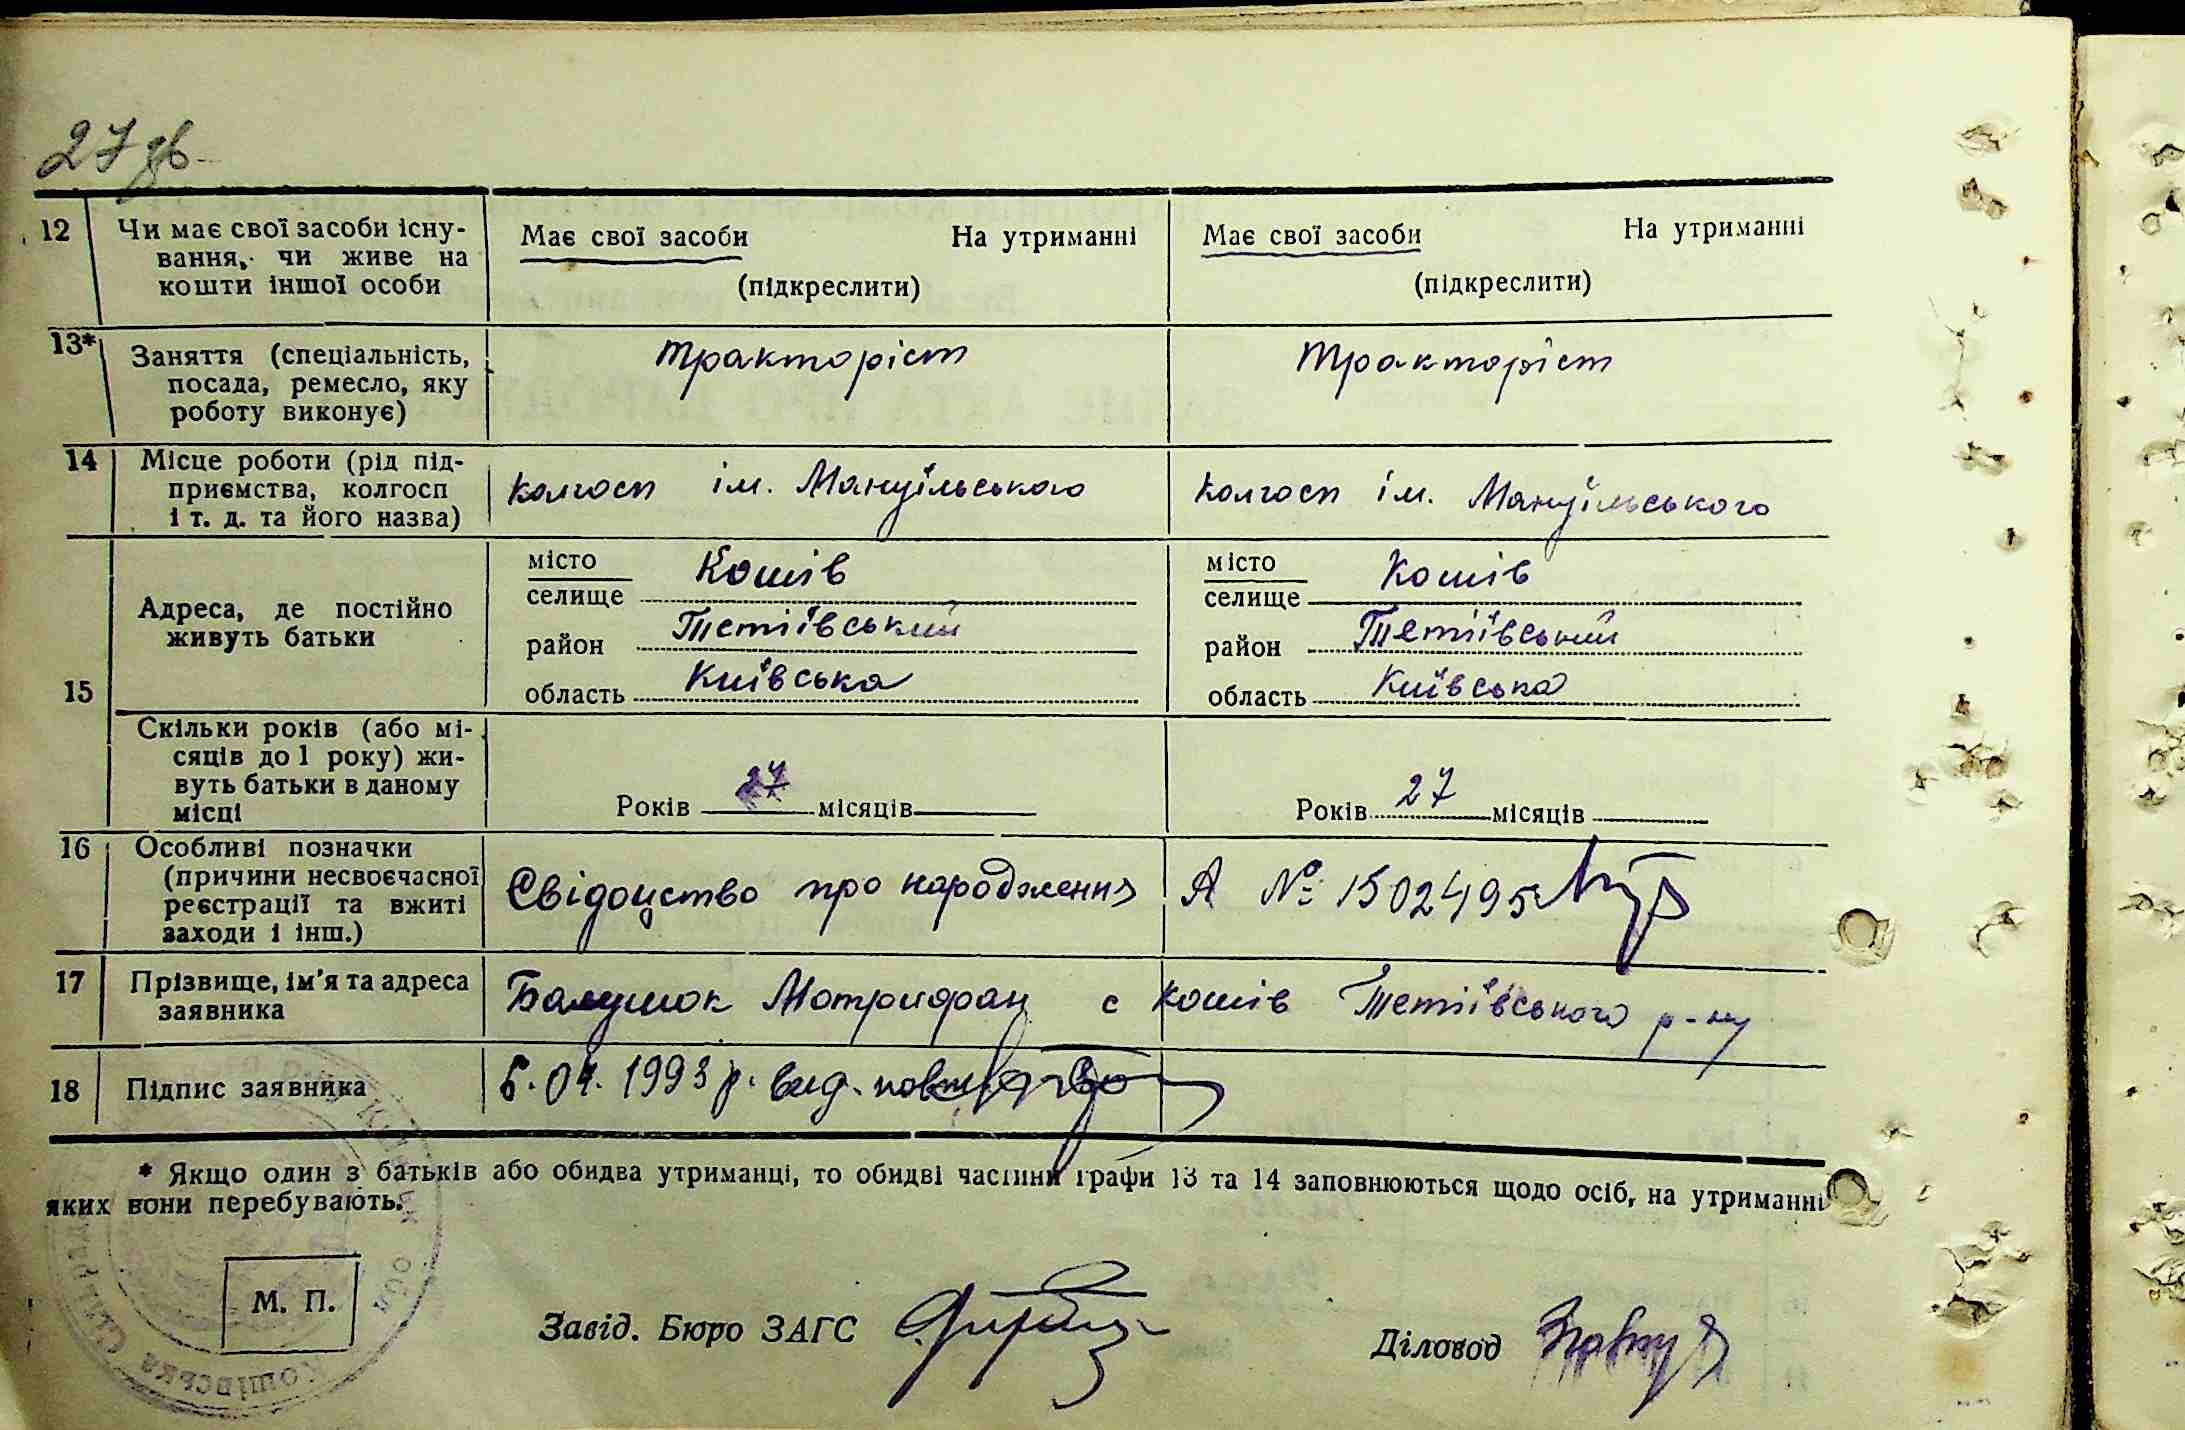 27
12 Чи має свої засоби існу-
вання, чи живе на
кошти іншої особи
Має свої засоби На утриманні
(підкреслити)
Має свої засоби На утриманні
(підкреслити)
13* Заняття (спеціальність,
посада, ремесло, яку
роботу виконує)
Тракторіст
Тракторіст
14 Місце роботи (рід під-
приємства, колгосп
і т. д. та його назва)
колгосп ім. Мануїльського
колгосп ім. Мануїльського
15
Адреса, де постійно
живуть батьки
місто
селище Кошів
район Тетіївський
область Київська
місто
селище Кошів
район Тетіївський
область Київська
Скільки років (або мі-
сяців до 1 року) жи-
вуть батьки в даному
місці
Років 27 місяців
Років 27 місяців
16 Особливі позначки
(причини несвоєчасної
реєстрації та вжиті
заходи і інш.)
Свідоцтво про народження А № 1502495
17 Прізвище, ім'я та адреса
заявника
с Кошів Тетіївського р-ну
18 Підпис заявника
1993 р. вид.
* Якщо один з батьків або обидва утриманці, то обидві частини графи 13 та 14 заповнюються щодо осіб, на утриманні
яких вони перебувають.
М. П.
Завід. Бюро ЗАГС
Діловод
Кошівська